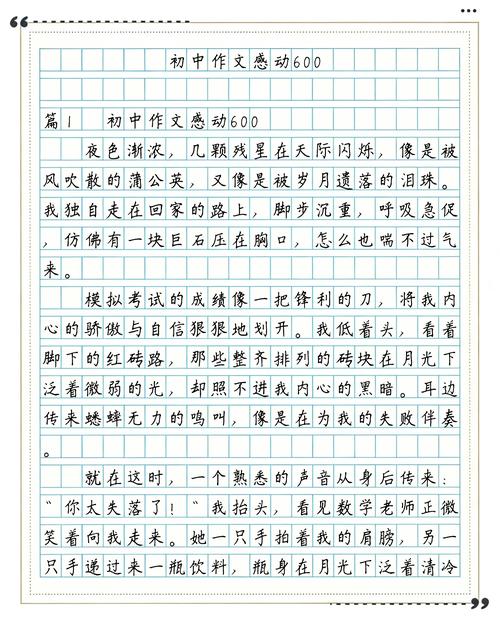 初中作文感动600
篇1 初中作文感动600
夜色渐浓，几颗残星在天际闪烁，像是被
风吹散的蒲公英，又像是被岁月遗落的泪珠。
我独自走在回家的路上，脚步沉重，呼吸急促
，仿佛有一块巨石压在胸口，怎么也喘不过气
来。
模拟考试的成绩像一把锋利的刀，将我内
心的骄傲与自信狠狠地划开。我低着头，看着
脚下的红砖路，那些整齐排列的砖块在月光下
泛着微弱的光，却照不进我内心的黑暗。耳边
传来蟋蟀无力的鸣叫，像是在为我的失败伴奏
。
就在这时，一个熟悉的声音从身后传来：
“你太失落了！“我抬头，看见数学老师正微
笑着向我走来。她一只手拍着我的肩膀，另一
只手递过来一瓶饮料，瓶身在月光下泛着清冷